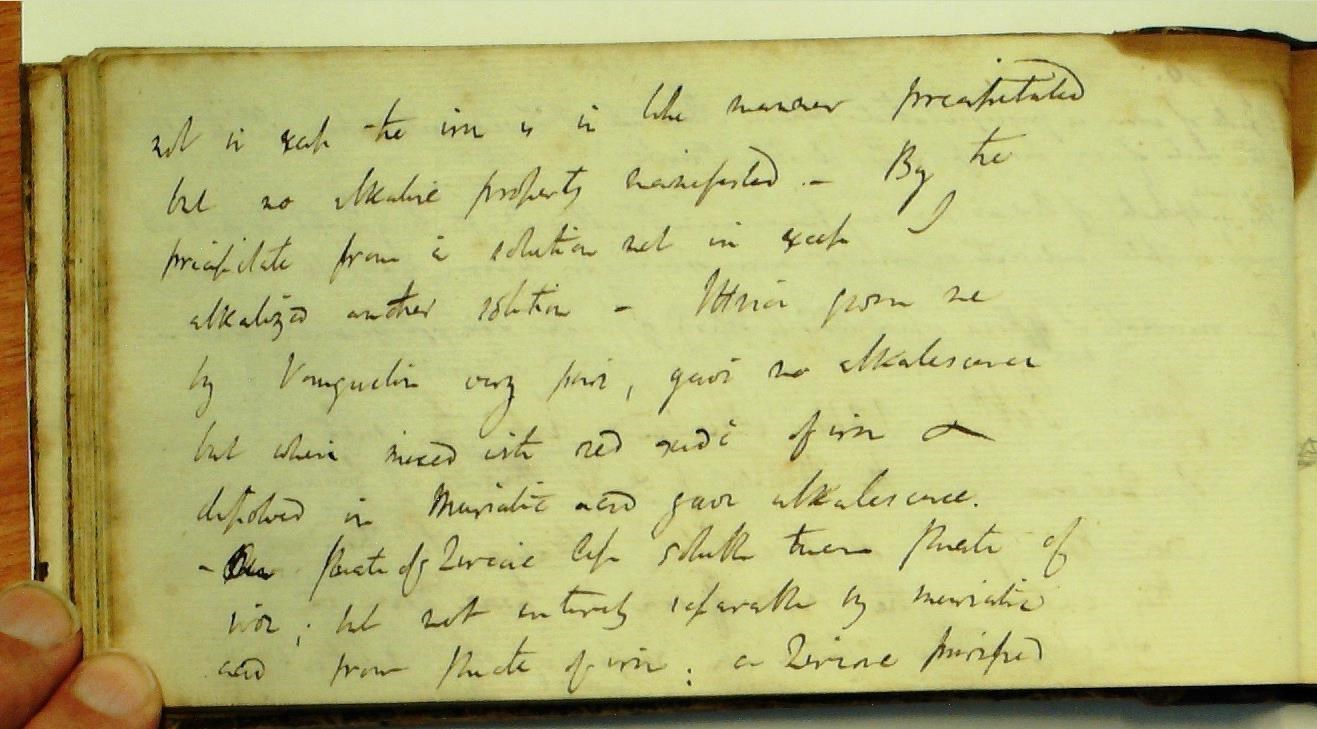 not in excess the iron is in like manner precipitated
but no alkaline property manifested. - By the
precipitate from a solution not in excess I
alkalized another solution - Yttria given me
by Vauquelin very pure, gave no alkalescence
but when mixed with red oxide of iron &
dissolved in Muriatic acid gave alkalescence.
- fluate of Zircone less soluble than fluate of
iron; but not entirely separable by muriatic
acid from fluate of iron: a Zircone purified